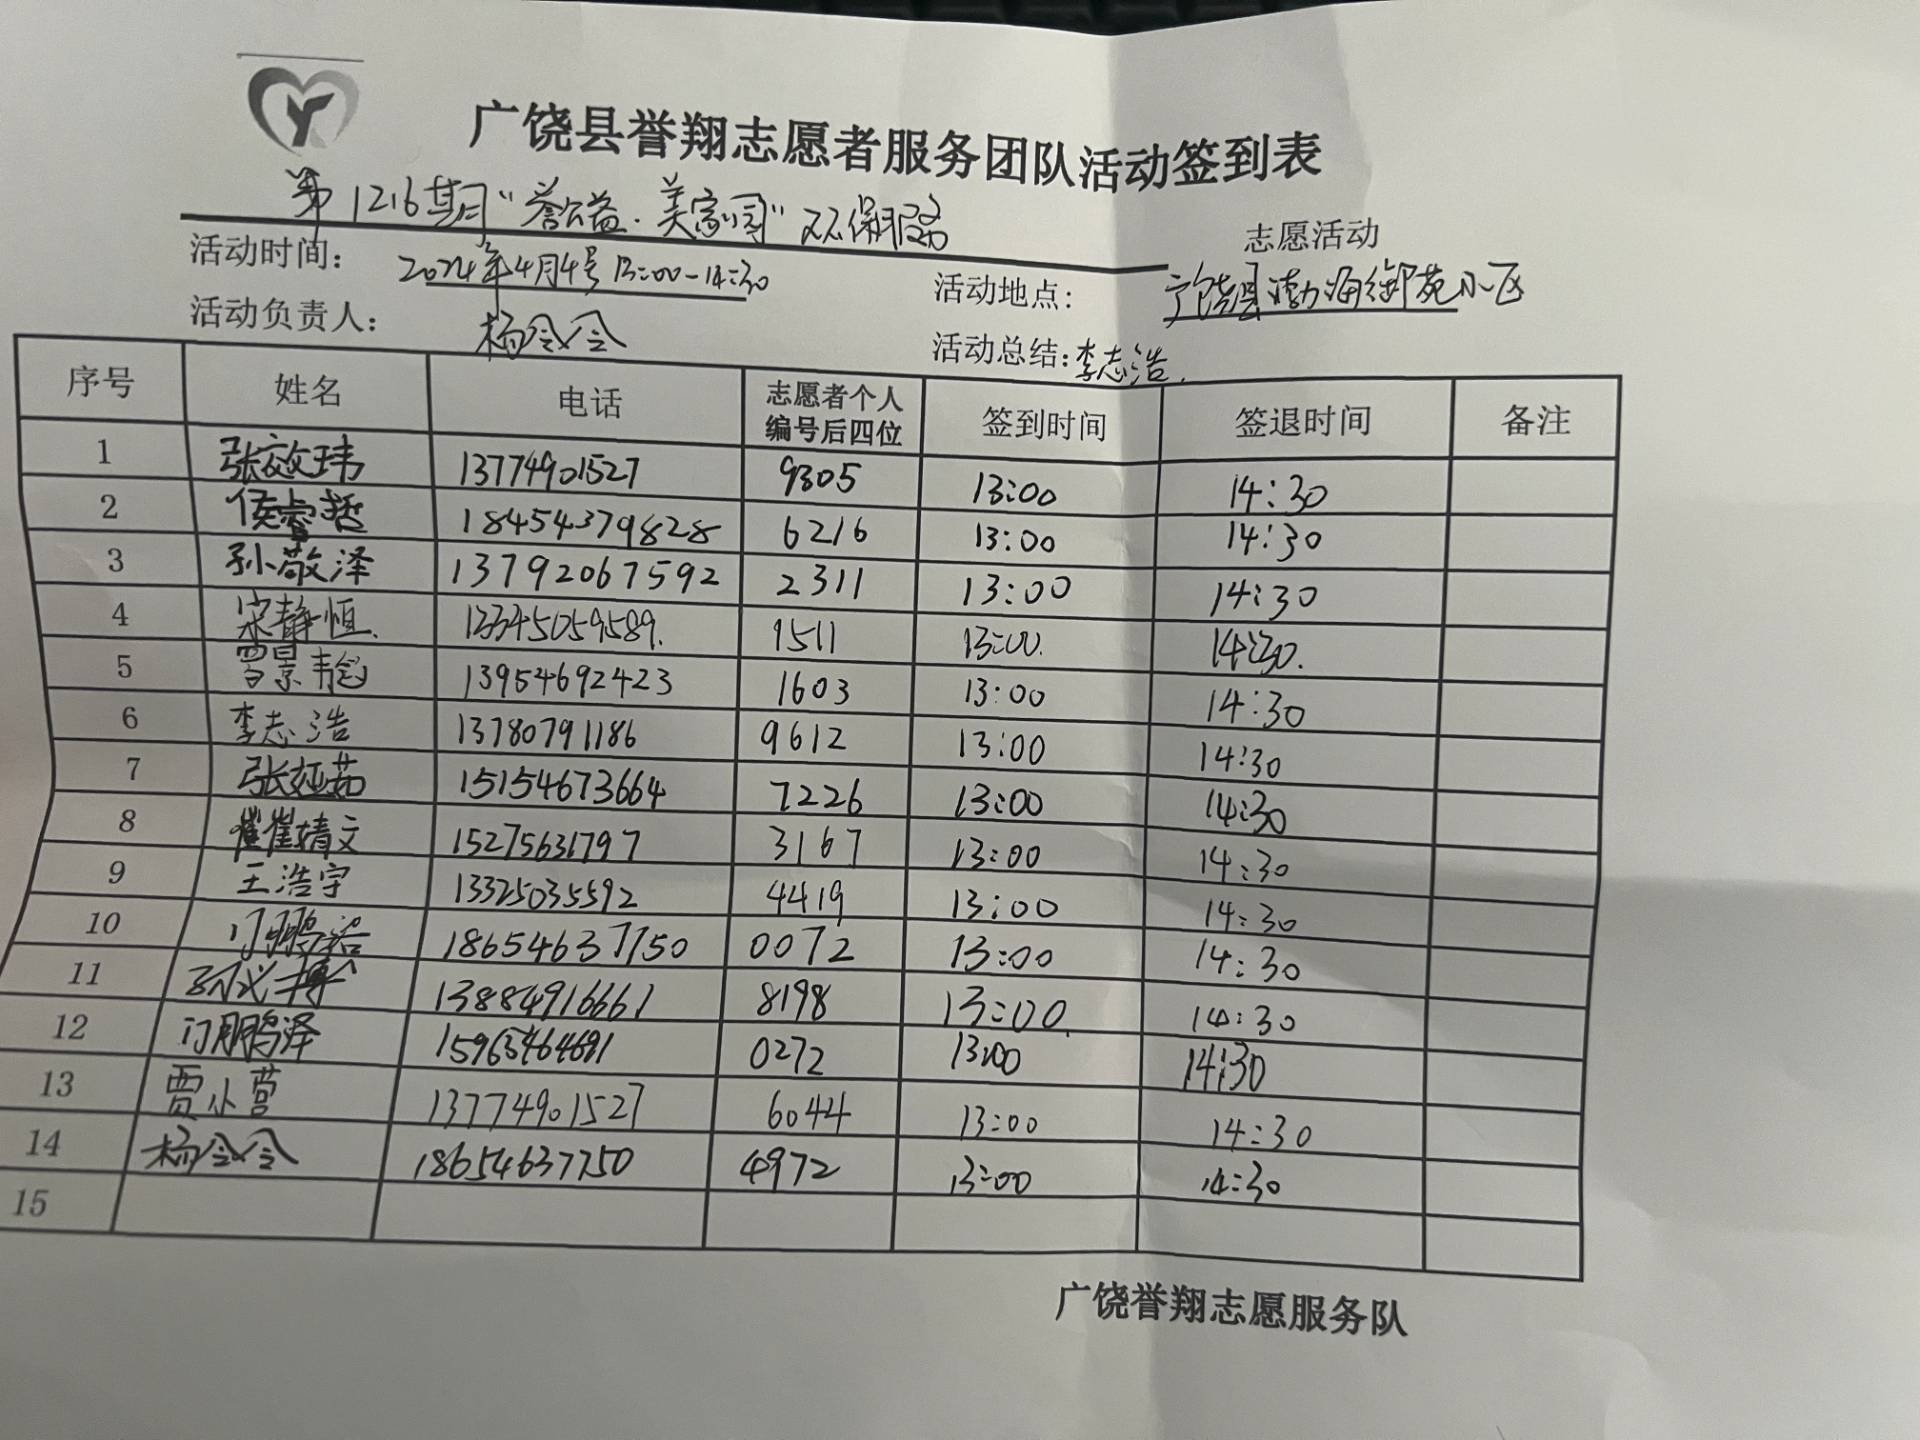 广饶县誉翔志愿者服务团队活动签到表
第1216期"誉公益·美家园"环保 志愿活动
活动时间： 2024年4月4号 13:00-14:30 活动地点： 广饶县渤海御苑小区
活动负责人： 杨令令 活动总结：李志浩
序号 姓名 电话 志愿者个人编号后四位 签到时间 签退时间 备注
1 张效玮 13774901527 9305 13:00 14:30
2 侯睿哲 18454379828 6216 13:00 14:30
3 孙敬泽 13792067592 2311 13:00 14:30
4 宋静恒 13345059589 1511 13:00 14:30
5 13954692423 1603 13:00 14:30
6 李志浩 13780791186 9612 13:00 14:30
7 张娅茹 15154673664 7226 13:00 14:30
8 崔婧文 15275631797 3167 13:00 14:30
9 王浩宇 13325035592 4419 13:00 14:30
10 18654637750 0072 13:00 14:30
11 13884916661 8198 13:00 14:30
12 门鹏泽 0272 13:00 14:30
13 贾小营 13774901527 6044 13:00 14:30
14 杨令令 18654637750 4972 13:00 14:30
15
广饶誉翔志愿服务队